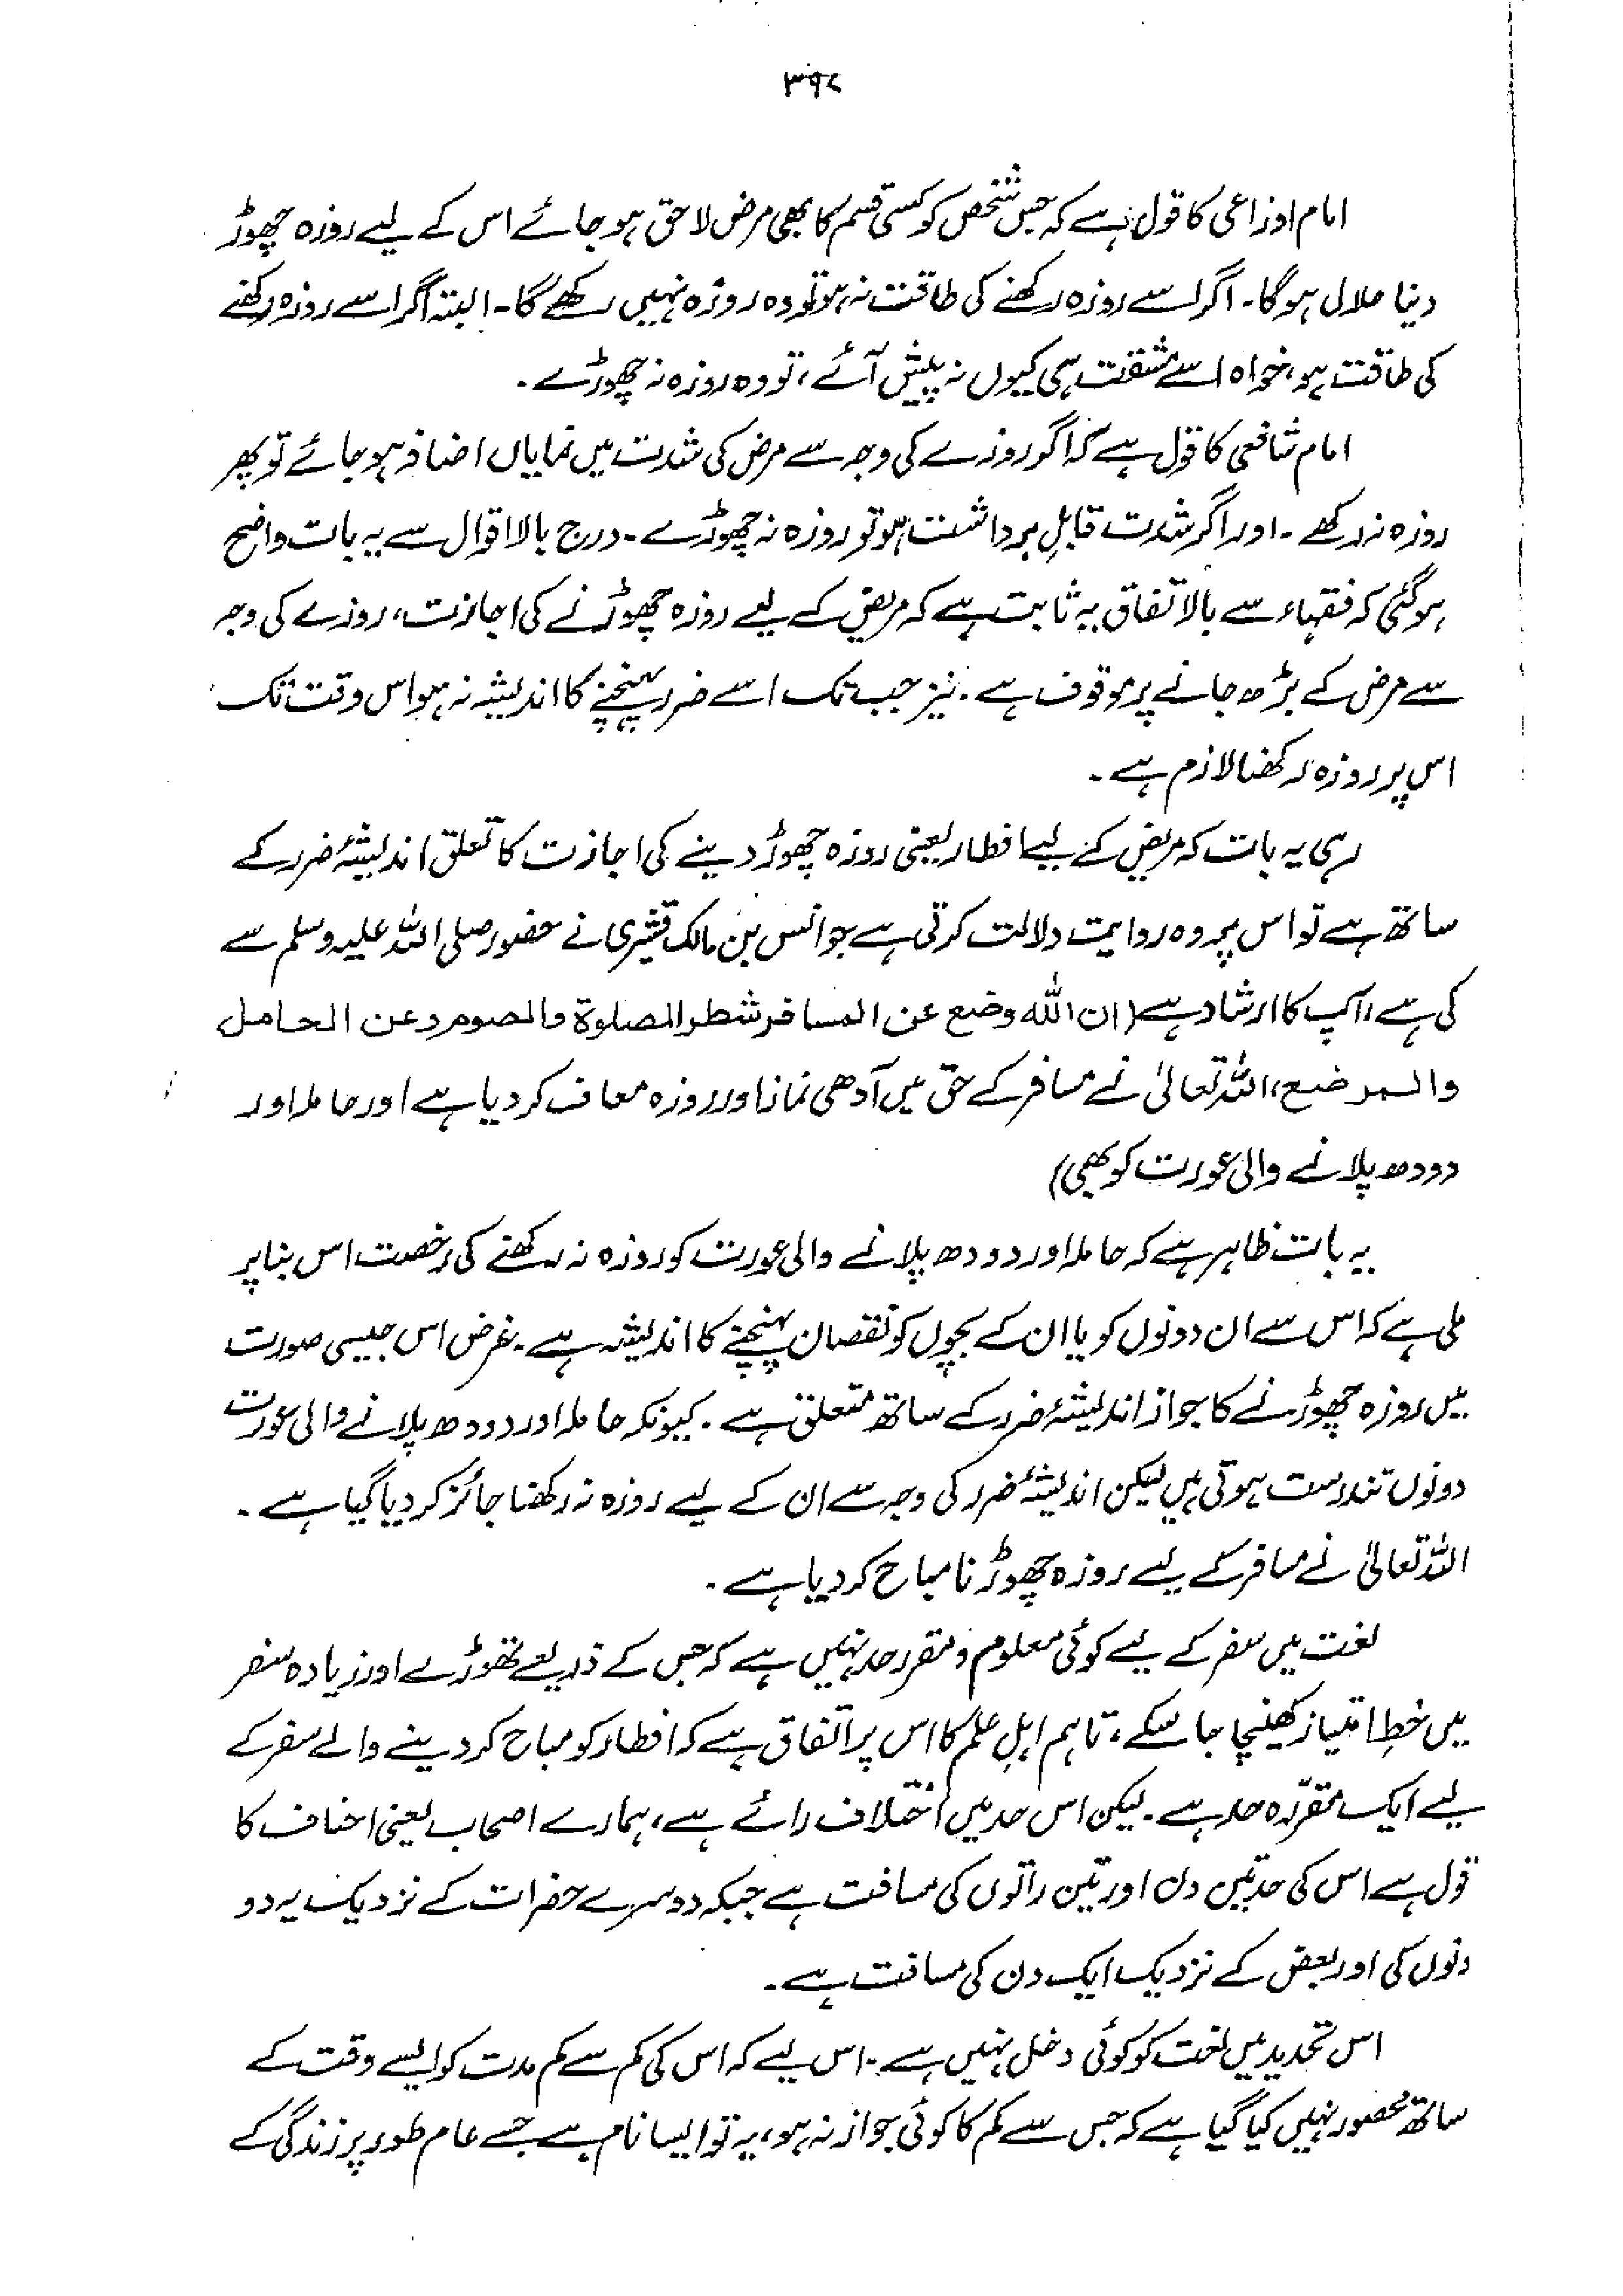 ۳۹۲
امام اوزاعی کا قول ہے کہ جس شخص کو کسی قسم کا بھی مرض لاحق ہو جائے اس کے لیے روزہ چھوڑ
دینا حلال ہوگا۔ اگر اسے روزہ رکھنے کی طاقت نہ ہو تو وہ روزہ نہیں رکھے گا۔ البتہ اگر اسے روزہ رکھنے
کی طاقت ہو، خواہ اسے مشقت ہی کیوں نہ پیش آئے، تو وہ روزہ نہ چھوڑے۔
امام شافعی کا قول ہے کہ اگر روزے کی وجہ سے مرض کی شدت میں نمایاں اضافہ ہو جائے تو پھر
روزہ نہ رکھے۔ اور اگر شدت قابلِ برداشت ہو تو روزہ نہ چھوڑے۔ درج بالا اقوال سے یہ بات واضح
ہو گئی کہ فقہاء سے بالاتفاق یہ ثابت ہے کہ مریض کے لیے روزہ چھوڑنے کی اجازت، روزے کی وجہ
سے مرض کے بڑھ جانے پر موقوف ہے۔ نیز جب تک اسے ضرر پہنچنے کا اندیشہ نہ ہو اس وقت تک
اس پر روزہ رکھنا لازم ہے۔
رہی یہ بات کہ مریض کے لیے افطار یعنی روزہ چھوڑ دینے کی اجازت کا تعلق اندیشۂ ضرر کے
ساتھ ہے تو اس پر وہ روایت دلالت کرتی ہے جو انس بن مالک قشیری نے حضور صلی اللہ علیہ وسلم سے
کی ہے، آپ کا ارشاد ہے (ان اللہ وضع عن المسافر شطر الصلوۃ والصوم وعن الحامل
والمرضع، اللہ تعالیٰ نے مسافر کے حق میں آدھی نماز اور روزہ معاف کر دیا ہے اور حاملہ اور
دودھ پلانے والی عورت کو بھی)
یہ بات ظاہر ہے کہ حاملہ اور دودھ پلانے والی عورت کو روزہ نہ رکھنے کی رخصت اس بنا پر
ملی ہے کہ اس سے ان دونوں کو یا ان کے بچوں کو نقصان پہنچنے کا اندیشہ ہے۔ غرض اس جیسی صورت
میں روزہ چھوڑنے کا جواز اندیشۂ ضرر کے ساتھ متعلق ہے۔ کیونکہ حاملہ اور دودھ پلانے والی عورت
دونوں تندرست ہوتی ہیں لیکن اندیشۂ ضرر کی وجہ سے ان کے لیے روزہ نہ رکھنا جائز کر دیا گیا ہے۔
اللہ تعالیٰ نے مسافر کے لیے روزہ چھوڑنا مباح کر دیا ہے۔
لغت میں سفر کے لیے کوئی معلوم و مقرر حد نہیں ہے کہ جس کے ذریعے تھوڑے اور زیادہ سفر
میں خطِ امتیاز کھینچا جا سکے، تاہم اہلِ علم کا اس پر اتفاق ہے کہ افطار کو مباح کر دینے والے سفر کے
لیے ایک مقررّہ حد ہے۔ لیکن اس حد میں اختلاف رائے ہے، ہمارے اصحاب یعنی احناف کا
قول ہے اس کی حد تین دن اور تین راتوں کی مسافت ہے جبکہ دوسرے حضرات کے نزدیک یہ دو
دنوں کی اور بعض کے نزدیک ایک دن کی مسافت ہے۔
اس تحدید میں لغت کو کوئی دخل نہیں ہے۔ اس لیے کہ اس کی کم سے کم مدت کو ایسے وقت کے
ساتھ محصور نہیں کیا گیا ہے کہ جس سے کم کا کوئی جواز نہ ہو، یہ تو ایسا نام ہے جسے عام طور پر زندگی کے